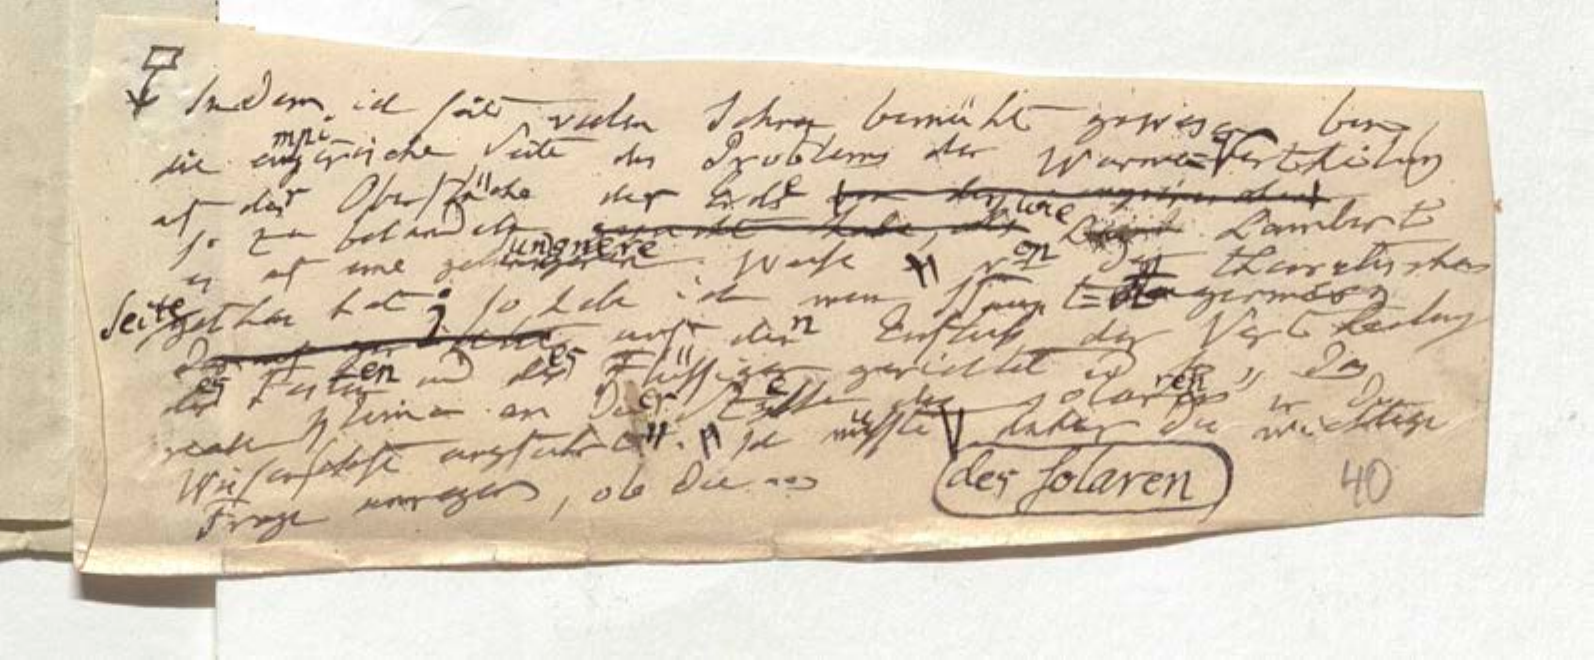 Indem ich seit vielen Jahren bemüht gewesen bin
die empirische Seite des Problems der Wärme=Vertheilung
auf der Oberfläche der Erde
so zu behandeln, wie Lambert
es auf eine Weise von der theoretischen
Seite gethan hat; so habe ich mein
auf den Einfluß der Vertheilung
des Festen und des Flüssigen gerichtet und „das
reale Klima an die Stelle des solaren in die
Wissenschaft eingeführt“. Ich müßte daher die wichtige
des solaren
Frage anregen, ob die
40